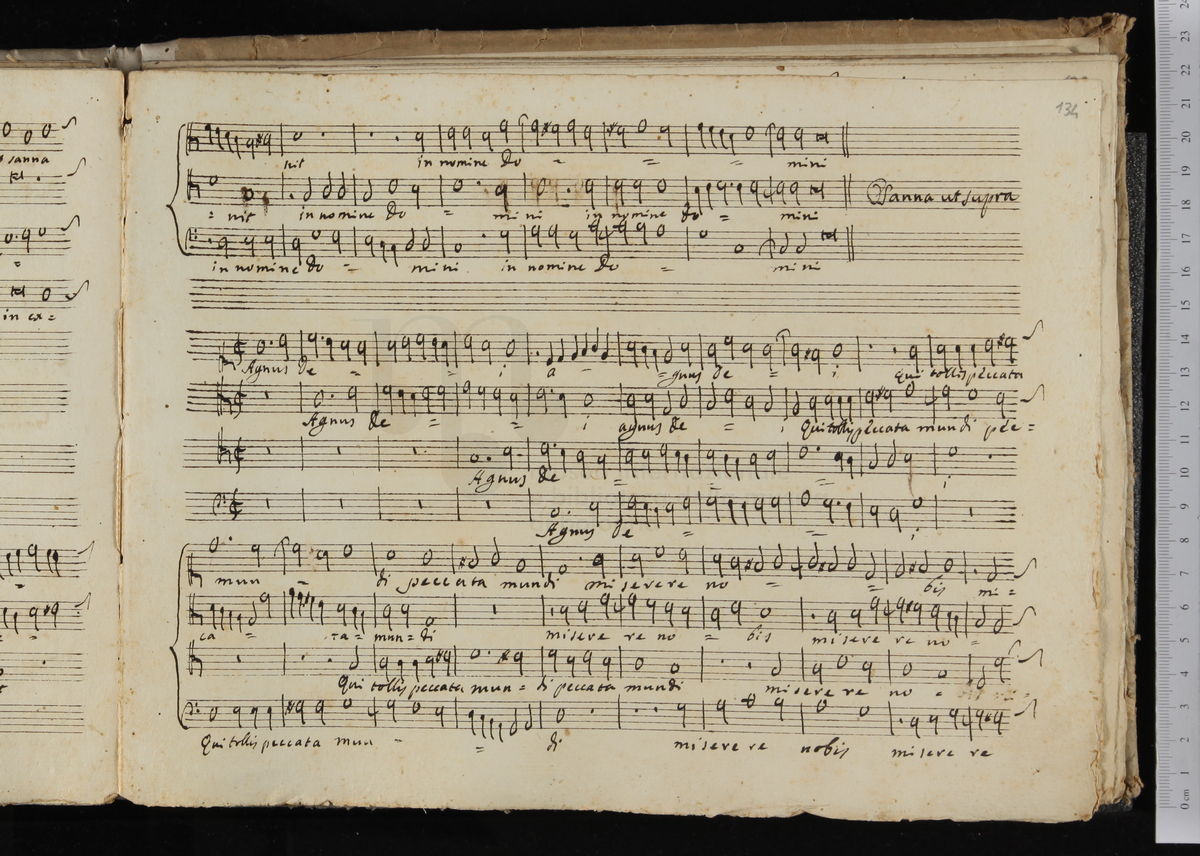 134
nit in nomine Do - = = mini
= nit in nomine Do = mini in nomine Do = mini
Osanna ut supra
in nomine Do = mini in nomine Do = mini
Agnus De = = i a - = gnus De = i qui tollis peccata
Agnus De = = i agnus De = i Qui tollis peccata mundi pec=
Agnus De = = = i
Agnus De = = i
mun = di peccata mundi miserere no = = bis mi=
ca = ta= mun=di miserere no = bis miserere no=
Qui tollis peccata mun = di peccata mundi miserere no =
Qui tollis peccata mun = = di miserere nobis miserere
sanna
in ex=